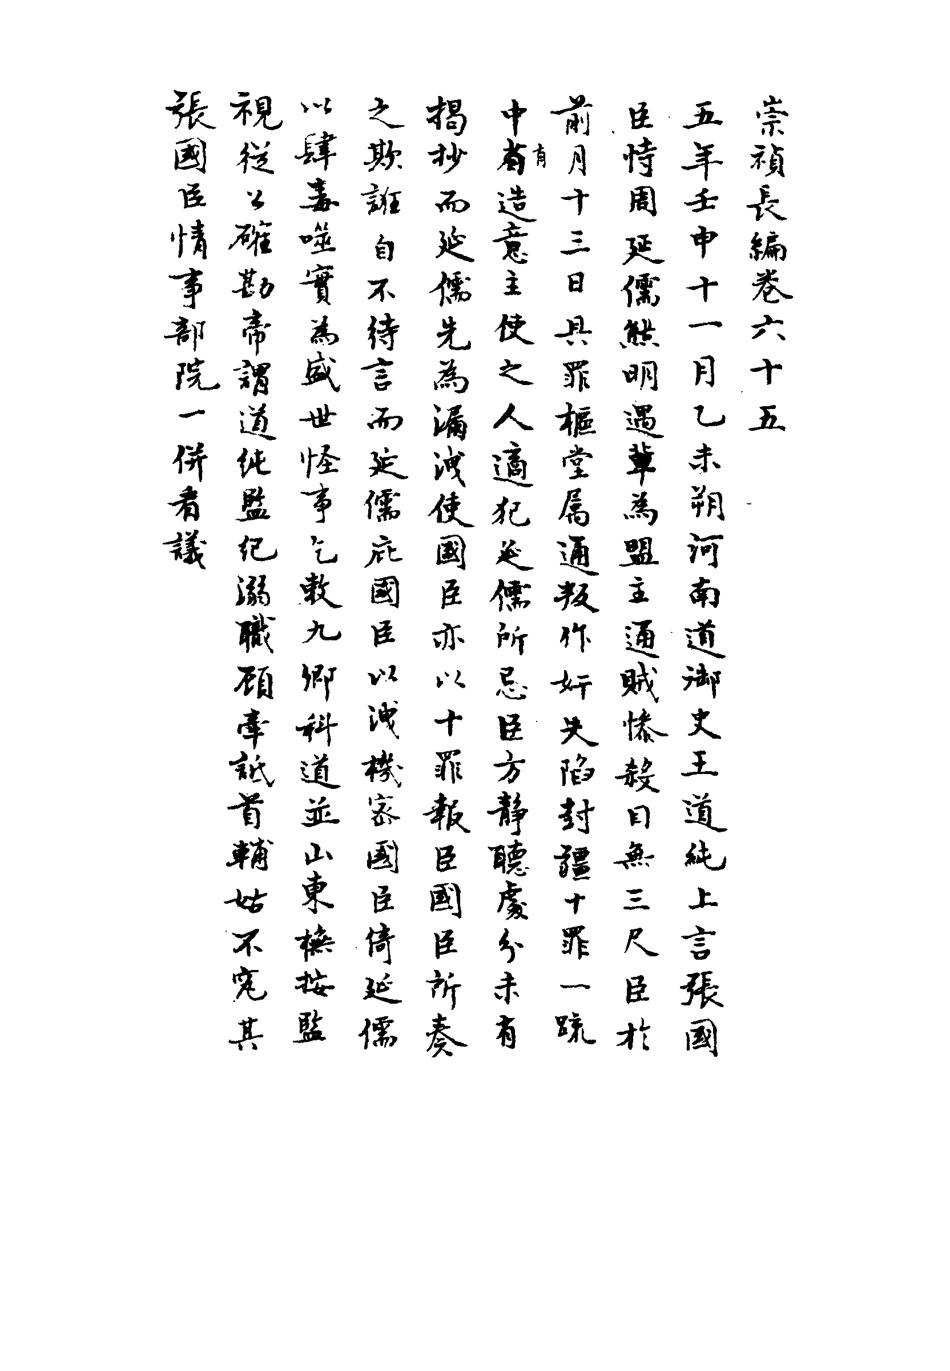 崇禎長編卷六十五
五年壬申十一月乙未朔河南道御史王道純上言張國
臣恃周延儒熊明遇輩為盟主通賊慘殺目無三尺臣於
前月十三日具罪樞堂屬通叛作奸失陷封疆十罪一疏
中有造意主使之人適犯延儒所忌臣方靜聽處分未有
揭抄而延儒先為漏洩使國臣亦以十罪報臣國臣所奏
之欺誑自不待言而延儒庇國臣以洩機密國臣倚延儒
以肆毒噬實為盛世怪事乞敕九卿科道並山東撫按監
視從公確勘帝謂道純監紀溺職顧牽詆首輔姑不究其
張國臣情事部院一併看議